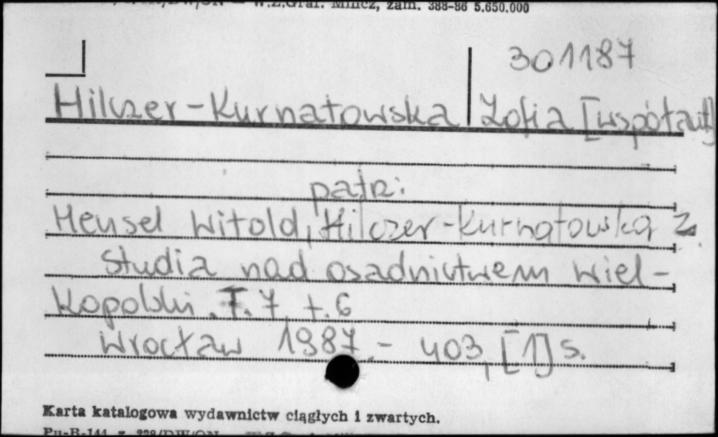 W.Z.Graf. Mincz, zam. 388-86 5.650.000
301187
Hilczer-Kurnatowska Zofia [współaut]
patrz:
Hensel Witold, Hilczer-Kurnatowska Z.
Studia nad osadnictwem Wiel-
kopolski. T. 7, t. 6
Wrocław 1987. - 403, [1] s.
Karta katalogowa wydawnictw ciągłych i zwartych.
Pu-B-144